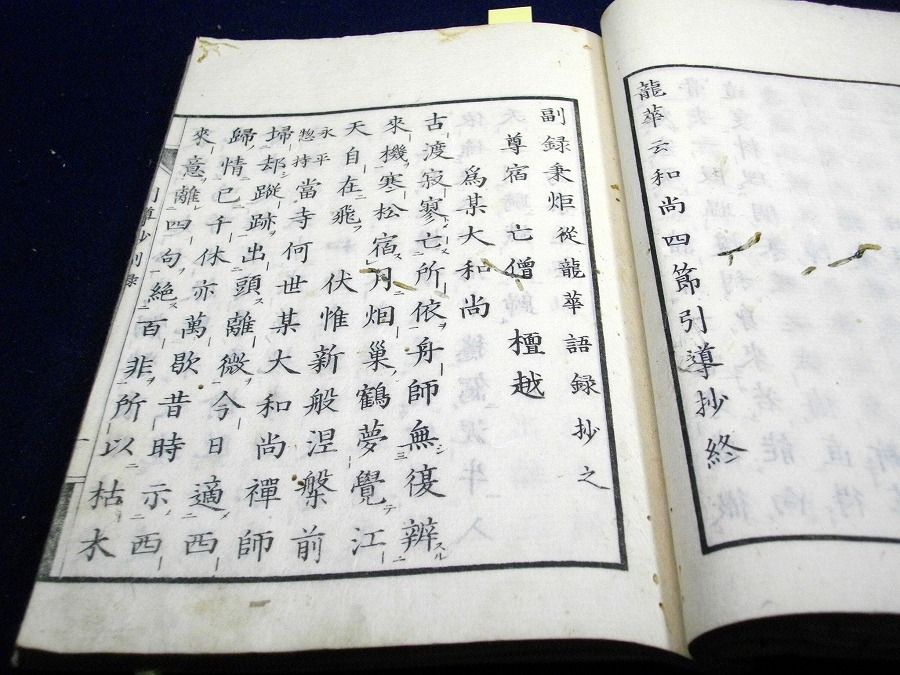 龍華云和尚四節引導抄終
副録秉炬從龍華語録抄之
尊宿亡僧檀越
為某大和尚
古渡寂寥亡所依舟師無復辨
來機寒松宿月烟巢鶴夢覺江
天自在飛伏惟新般涅槃前
永平
惣持當寺何世某大和尚禪師
埽却蹤跡出頭離微今日適西
歸情已千休亦萬歇昔時示西
來意離四句絶百非所以枯木
引導抄副録